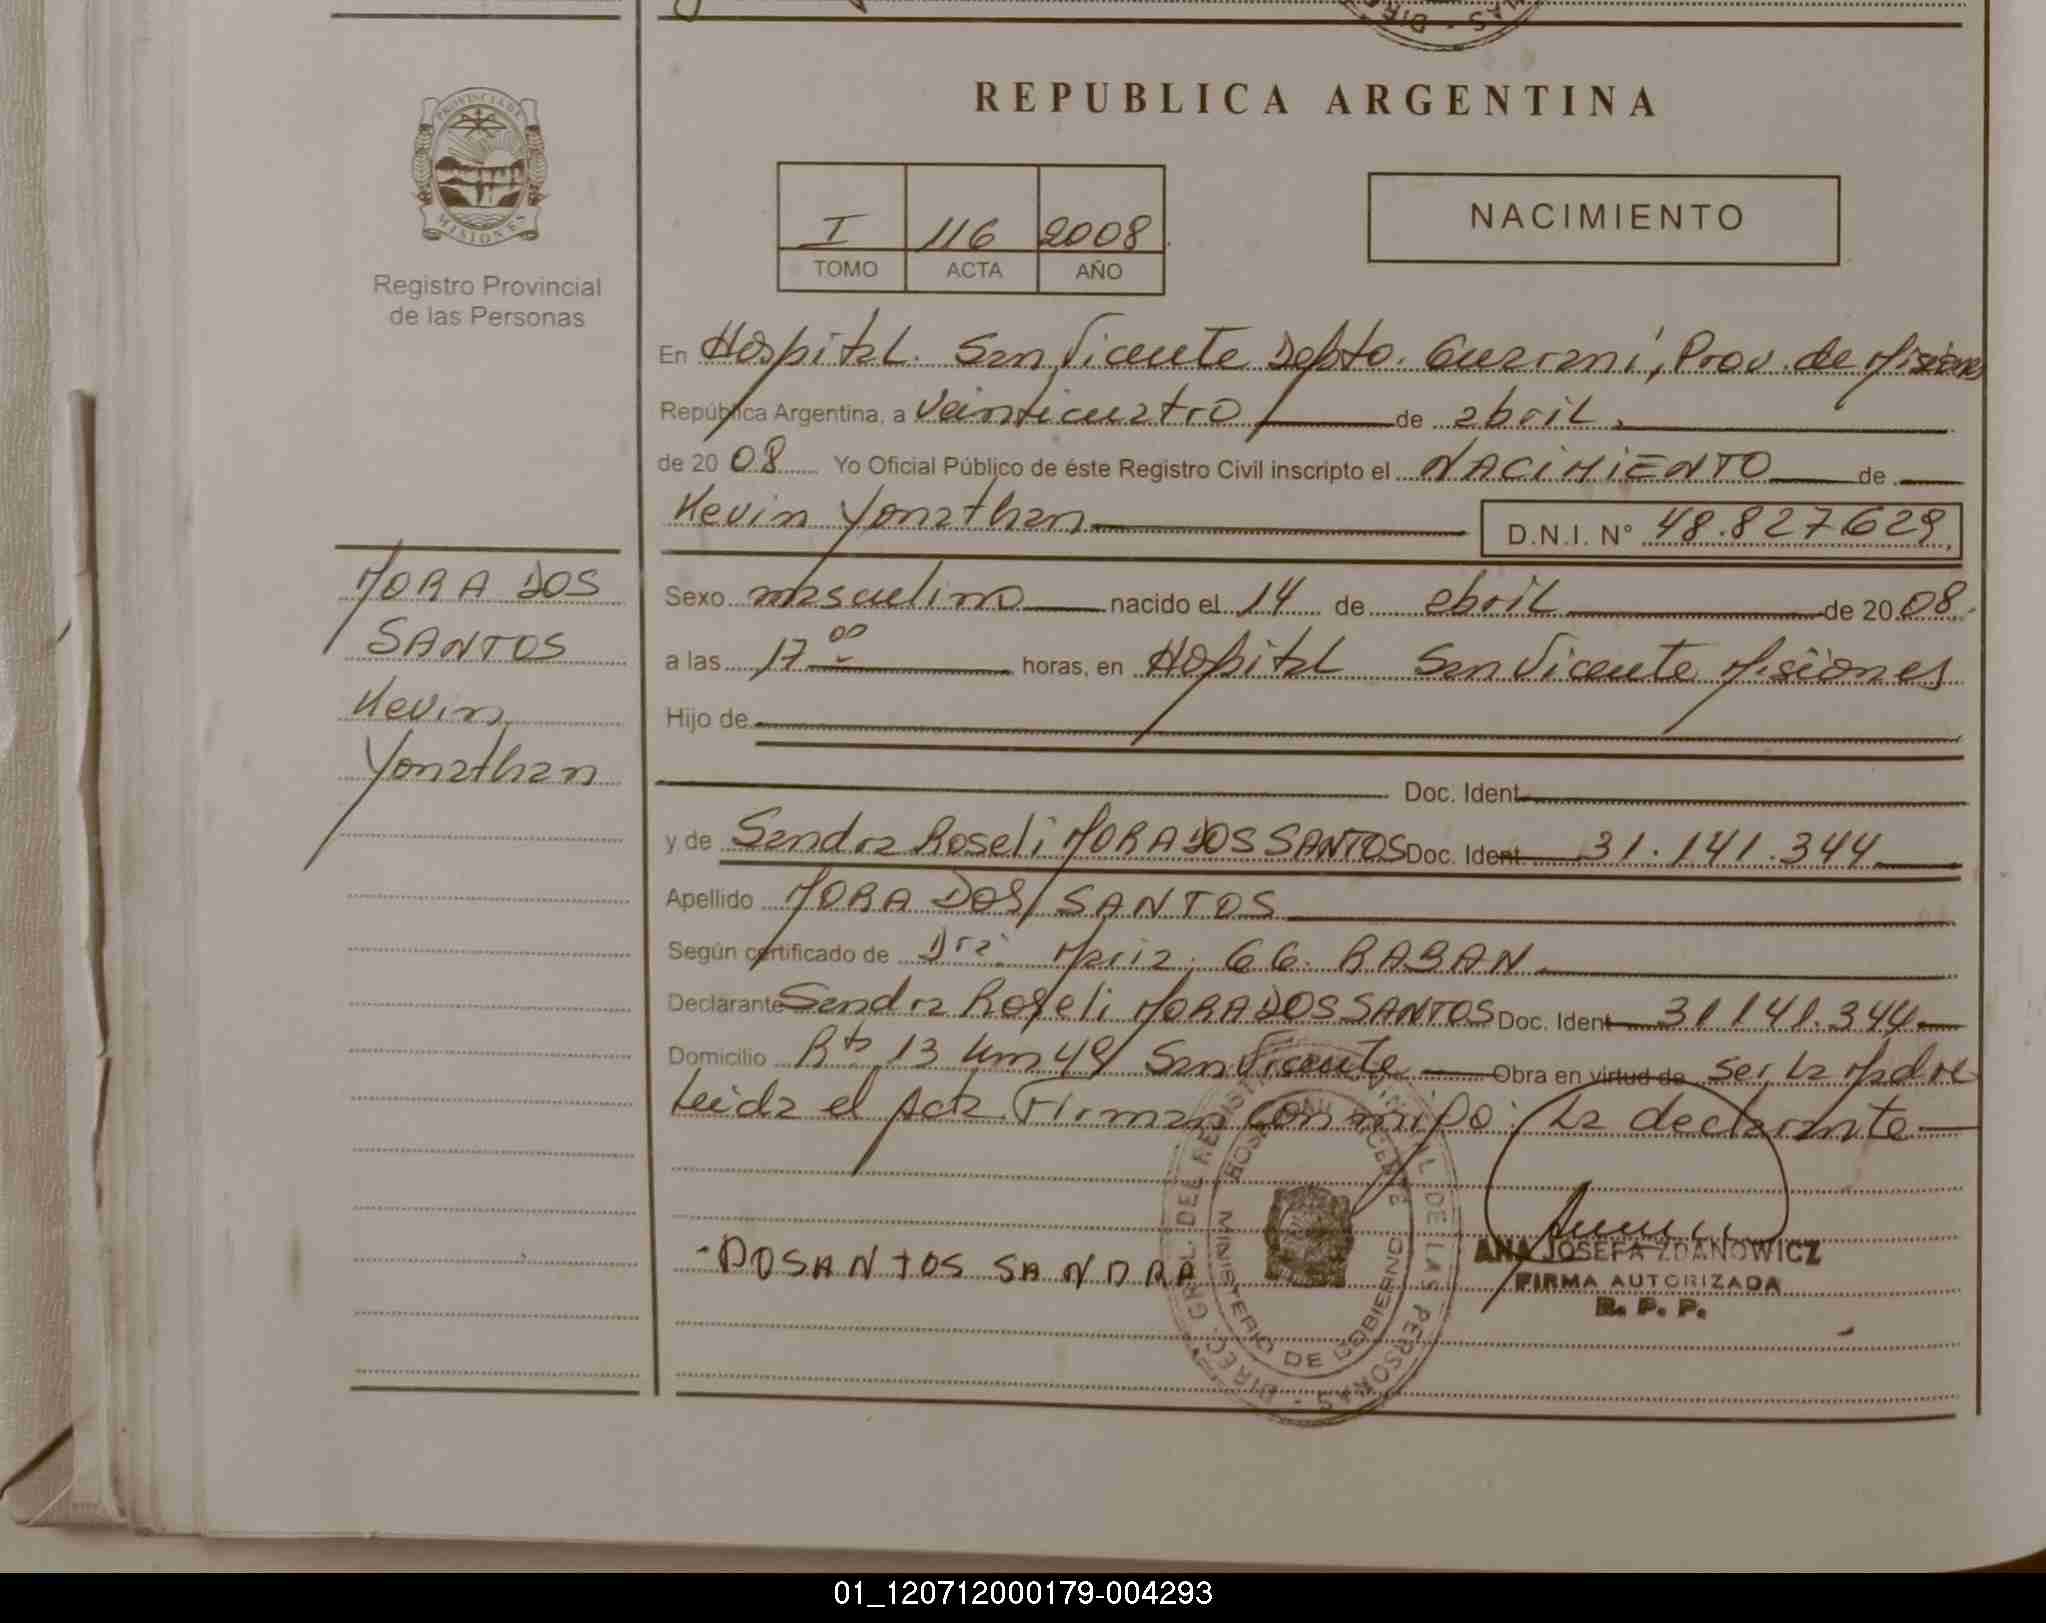 REPUBLICA ARGENTINA
PROVINCIA DE
MISIONES
Registro Provincial
de las Personas
I 116 2008
TOMO ACTA AÑO
NACIMIENTO
En Hospital. San Vicente Depto. Guarani, Prov. de Misiones
República Argentina, a veinticuatro de abril.
de 2008 Yo Oficial Público de éste Registro Civil inscripto el NACIMIENTO de
Kevin Yonathan D.N.I. N° 48.827629.
MORA DOS
SANTOS
Kevin
Yonathan
Sexo masculino nacido el 14 de abril de 2008.
a las 17 00 horas, en Hospital San Vicente Misiones
Hijo de
Doc. Ident.
y de Sandra Roseli MORA DOS SANTOS Doc. Ident. 31.141.344
Apellido MORA DOS SANTOS
Según certificado de Dra. Maria. GG. RABAN.
Declarante Sandra Roseli MORA DOS SANTOS Doc. Ident. 31141.344
Domicilio Rta 13 km 49 San Vicente Obra en virtud de ser la Madre
Leida el Acta. Firman conmigo: La declarante
DOSANTOS SANDRA
ANA JOSEFA ZDANOWICZ
FIRMA AUTORIZADA
R. P. P.
DIREC. GRL. DEL REGISTRO CIVIL DE LAS PERSONAS
MINISTERIO DE GOBIERNO
01_120712000179-004293